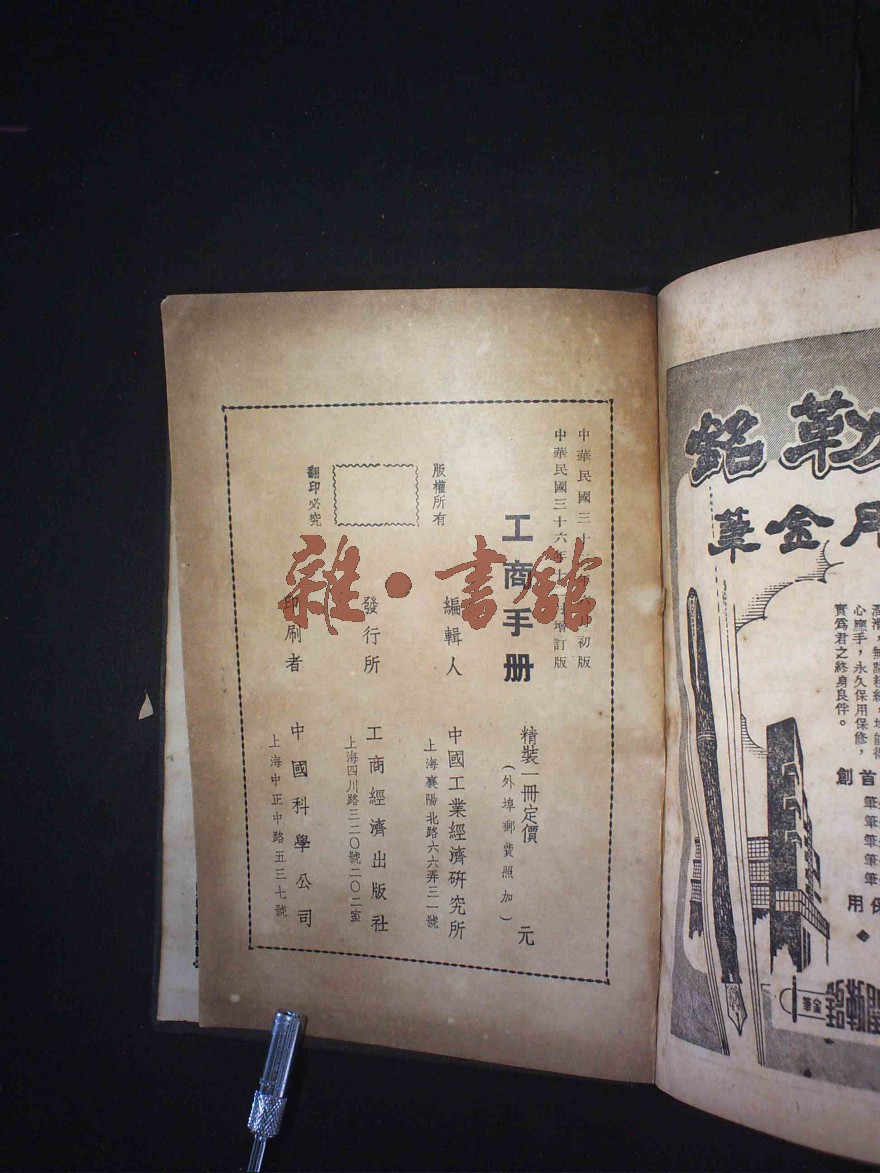 中華民國三十
初版
中華民國三十六年十
增訂版
工商手册
精裝一冊定價 元
(外埠郵費照加)
版權所有
翻印必究
編輯人 中國工業經濟研究所
上海襄陽北路六六弄三一號
發行所 工商經濟出版社
上海四川路三二〇號二〇二室
印刷者 中國科學公司
上海中正中路五三七號
雜·書館
勒銘
金筆
心應手,永久保用保修,
實爲君之終身良伴。
首創
筆
筆
筆
筆
筆
保用
金筆